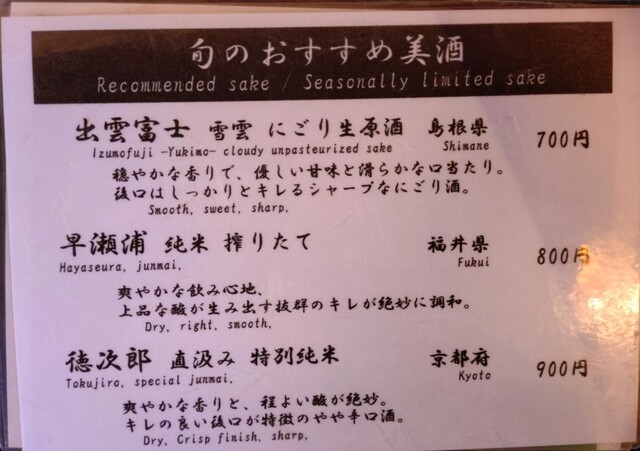 旬のおすすめ美酒
Recommended sake / Seasonally limited sake
出雲富士 雪雲 にごり生原酒 島根県 700円
Izumofuji -Yukimo- cloudy unpasteurized sake Shimane
穏やかな香りで、優しい甘味と滑らかな口当たり。
後口はしっかりとキレるシャープなにごり酒。
Smooth, sweet, sharp.
早瀬浦 純米 搾りたて 福井県 800円
Hayaseura, junmai, Fukui
爽やかな飲み心地、
上品な酸が生み出す抜群のキレが絶妙に調和。
Dry, right, smooth,
徳次郎 直汲み 特別純米 京都府 900円
Tokujiro, special junmai, Kyoto
爽やかな香りと、程よい酸が絶妙。
キレの良い後口が特徴のやや辛口酒。
Dry, Crisp finish, sharp,